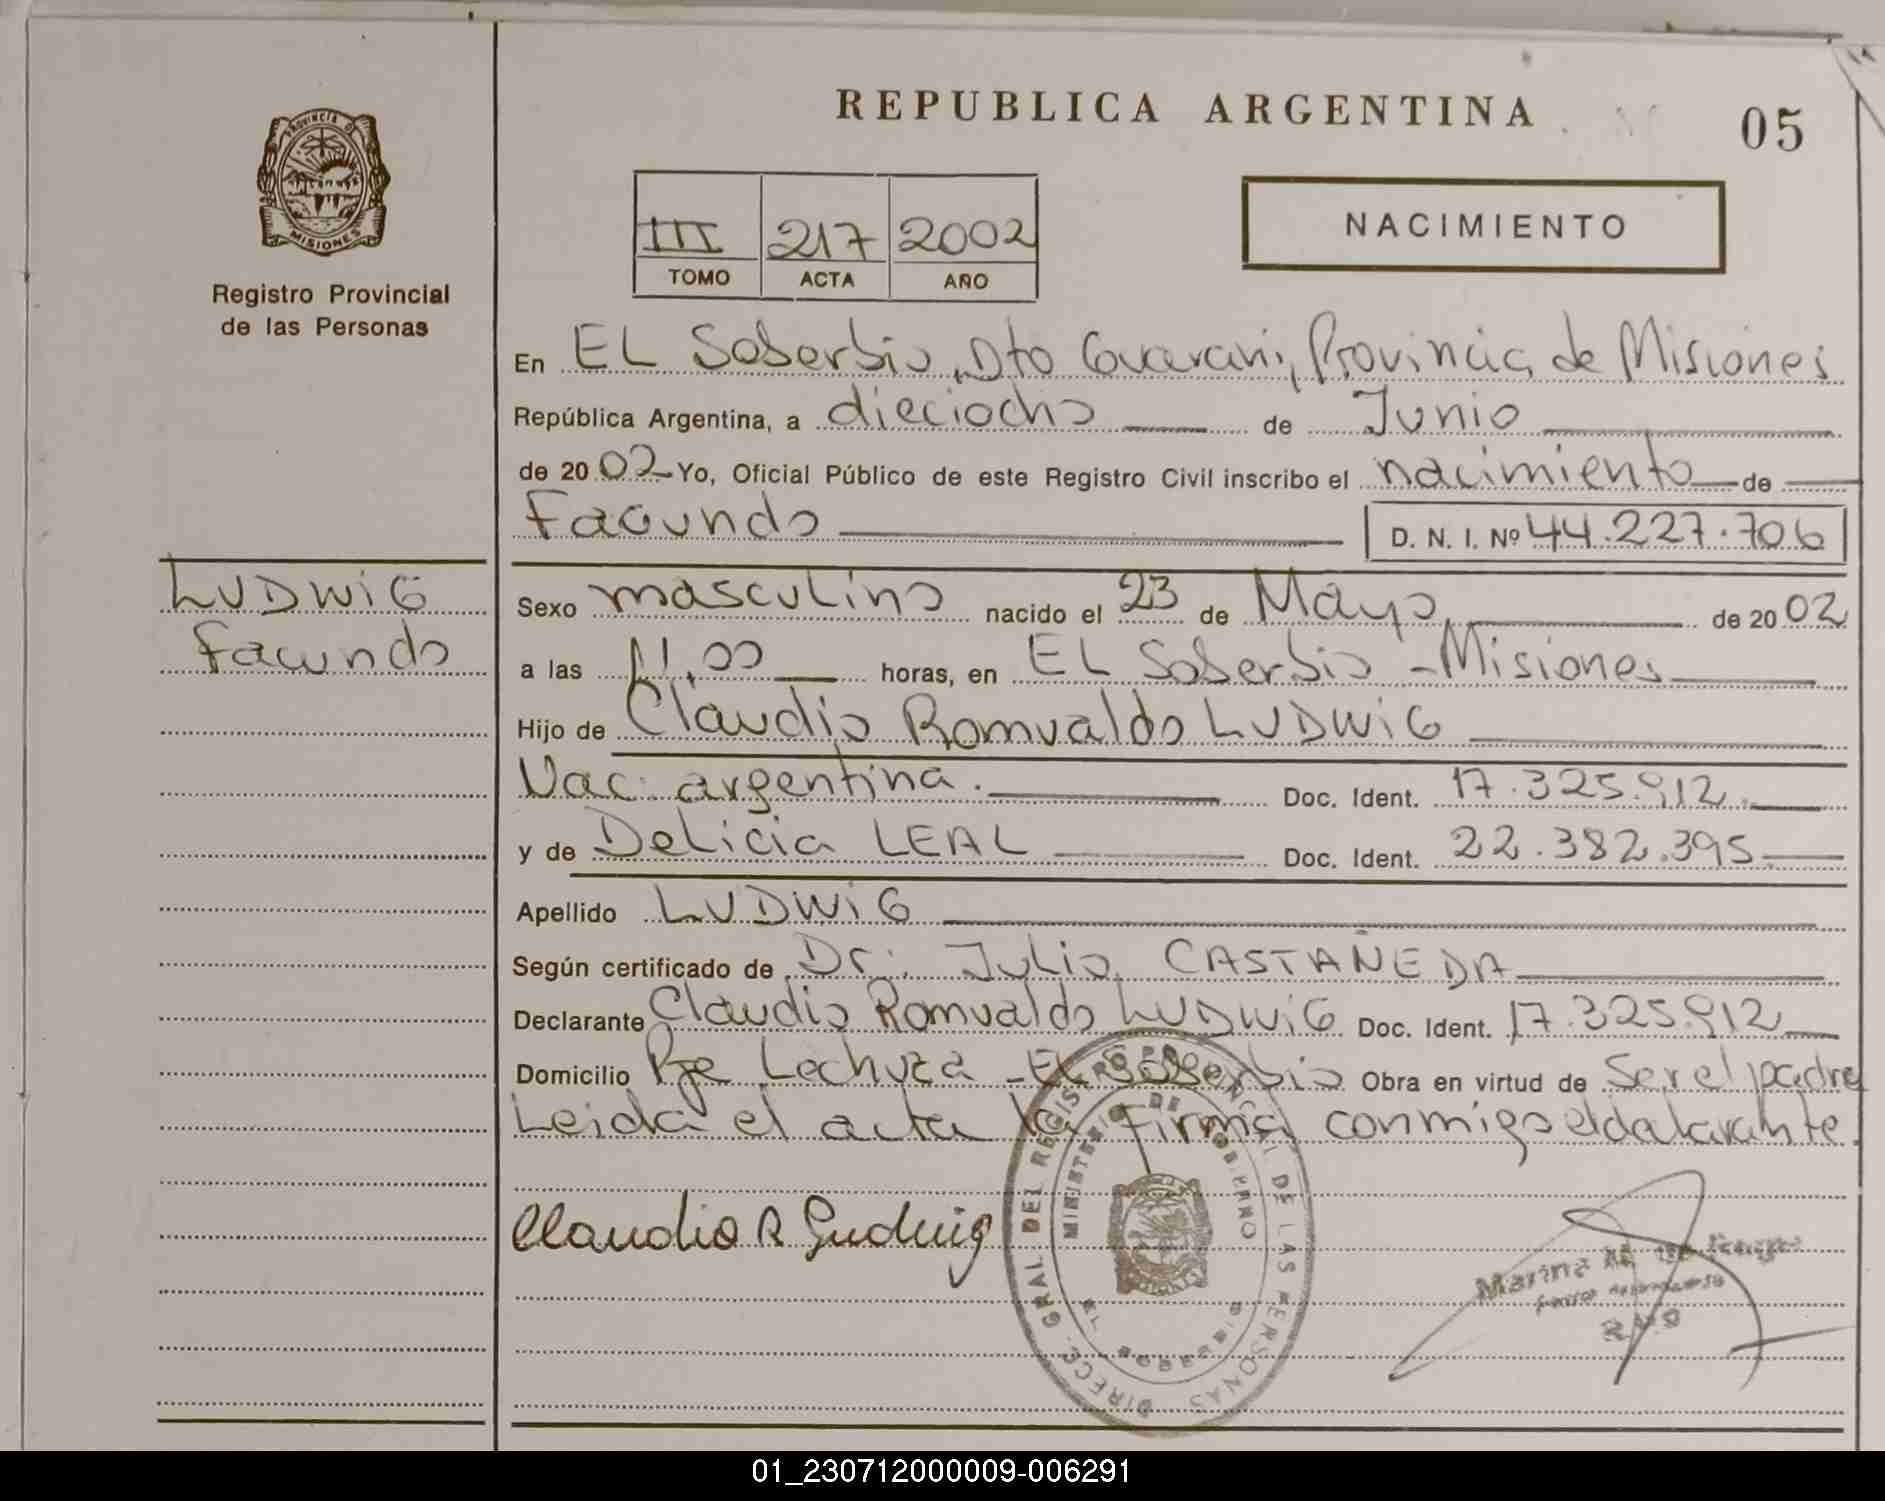 REPUBLICA ARGENTINA
05
PROVINCIA DE
MISIONES
Registro Provincial
de las Personas
III 217 2002
TOMO ACTA AÑO
NACIMIENTO
En EL Soberbio, Dto Guarani, Provincia de Misiones
República Argentina, a dieciocho de Junio
de 2002 Yo, Oficial Público de este Registro Civil inscribo el nacimiento de
Facundo D. N. I. Nº 44.227.706
LUDWiG
Facundo
Sexo masculino nacido el 23 de Mayo de 2002
a las 11,00 horas, en EL Soberbio - Misiones
Hijo de Claudio Romualdo LUDWiG
Nac: argentina. Doc. Ident. 17.325.912.
y de Delicia LEAL Doc. Ident. 22.382.395.
Apellido LUDWiG
Según certificado de Dr. Julio CASTAÑEDA
Declarante Claudio Romualdo LUDWiG Doc. Ident. 17.325.912
Domicilio Pje Lechuza - EL Soberbio Obra en virtud de Ser el padre
Leida el acta la firma conmigo el
Claudio R Ludwig
DIRECC. GRAL DEL REGISTRO PROVINCIAL DE LAS PERSONAS
MINISTERIO DE GOBIERNO
Marina
01_230712000009-006291